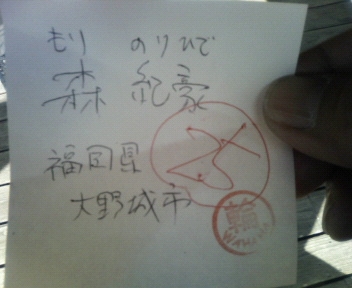 もり のりひで
森 紀豪
福岡県
大野城市